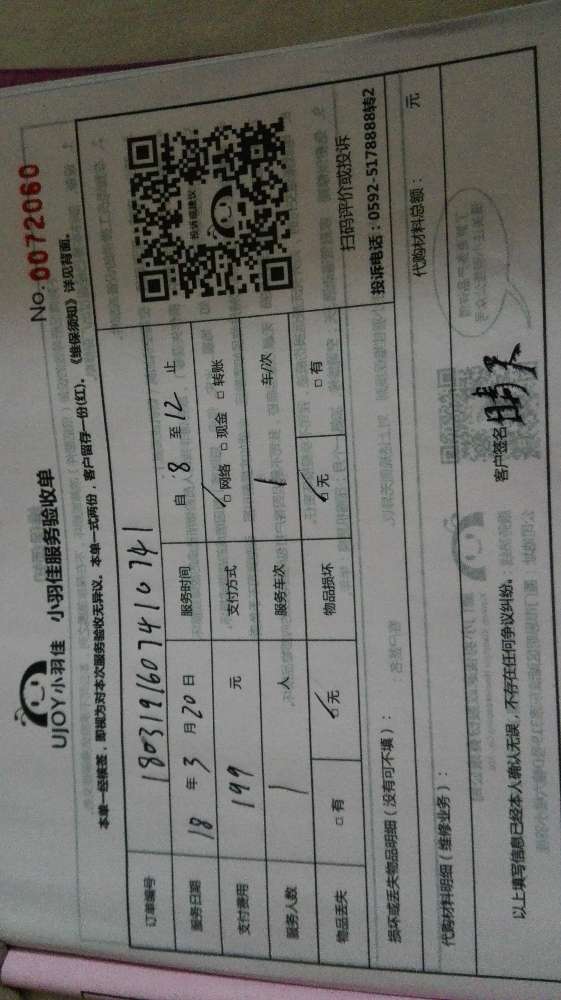 UJOY小羽佳 小羽佳服务验收单
No. 0072060
本单一经核签，即视为对本次服务验收无异议。本单一式两份，客户留存一份(红)。《维保须知》详见背面。
订单编号 180319160741 0741
服务日期 18 年 3 月 20 日 服务时间 自 8 至 12 止
支付费用 199 元 支付方式 网络 □现金 □转账
服务人数 1 人 服务车次 1 车/次
物品丢失 □有 无 物品损坏 无 □有
投诉或建议
扫码评价或投诉
投诉电话：0592-5178888转2
损坏或丢失物品明细（没有可不填）：
代购材料明细（维修业务）：
代购材料总额： 元
以上填写信息已经本人确认无误，不存在任何争议纠纷。
客户签名